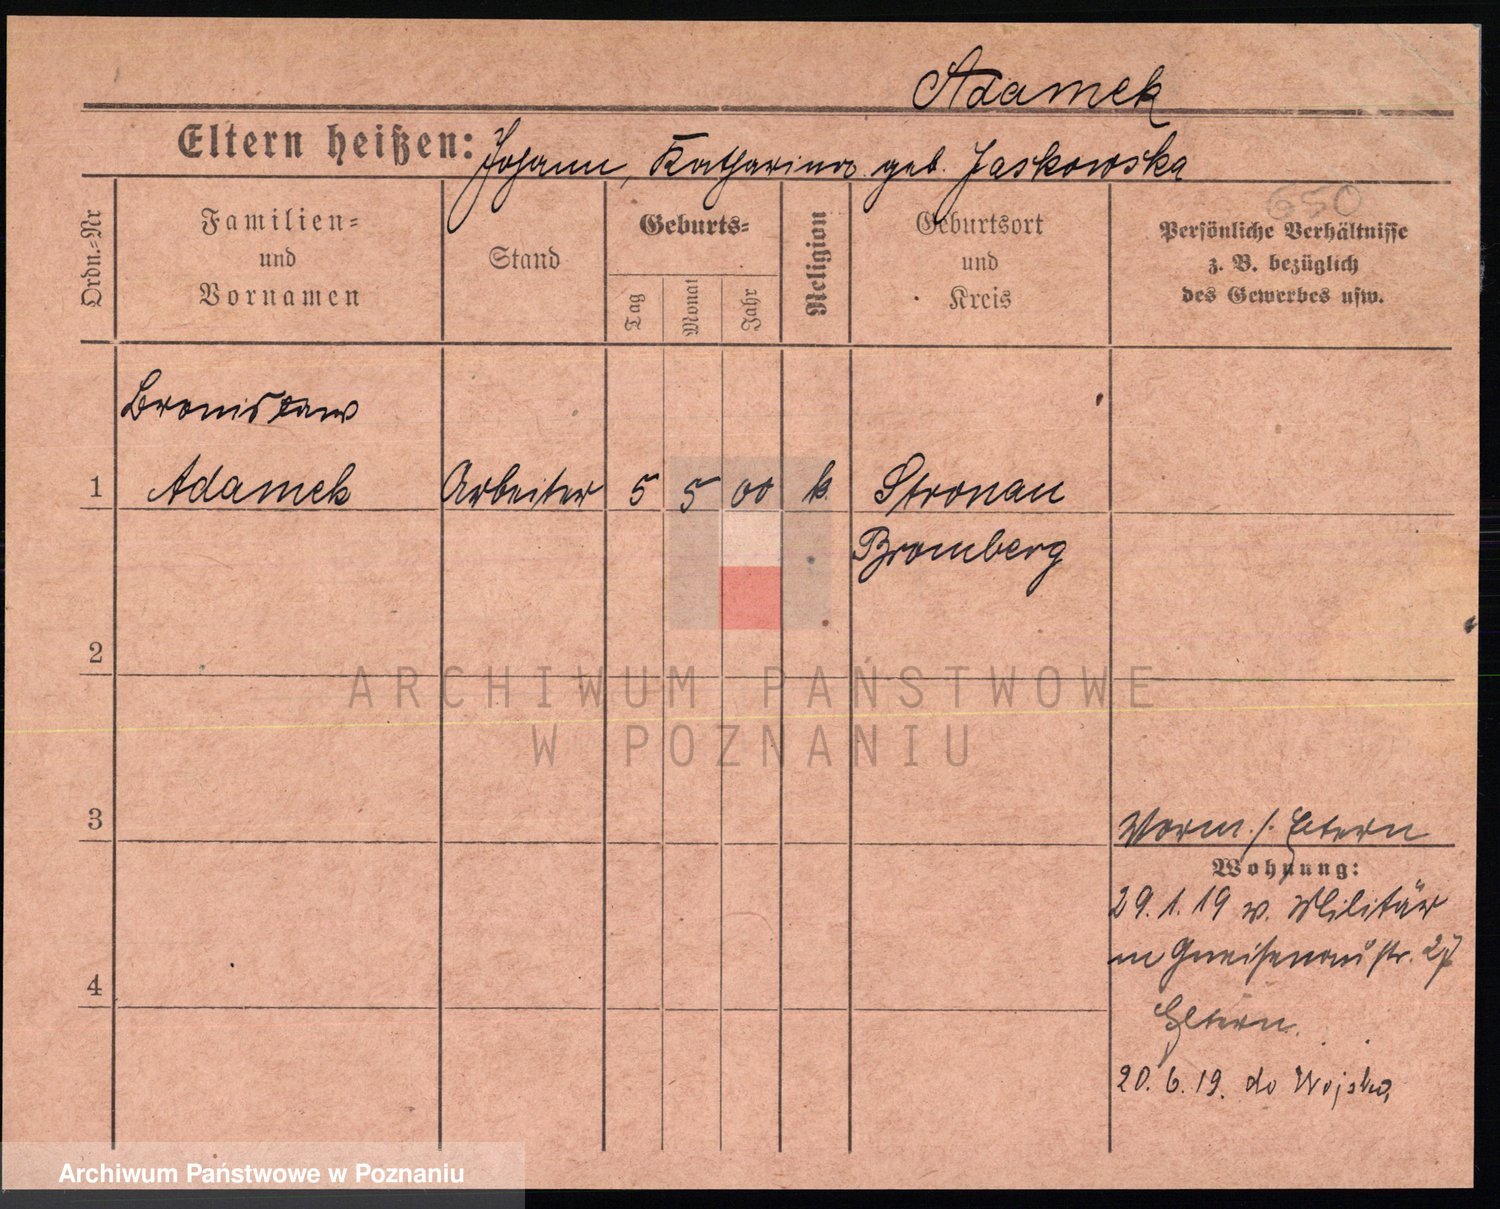 Adamek
Eltern heißen: Johann, Katharina geb. Jaskowska
650
Ordn.=Nr
Familien=
und
Vornamen
Stand
Geburts=
Tag
Monat
Jahr
Religion
Geburtsort
und
Kreis
Persönliche Verhältnisse
z. B. bezüglich
des Gewerbes usw.
Bronisław
1 Adamek Arbeiter 5 5 00 k. Stronau
Bromberg
2
ARCHIWUM PAŃSTWOWE
W POZNANIU
3
Vorm. /. Eltern
Wohnung:
29.1.19 v. Militär
in Gneisenaustr. 27
4
Eltern.
20.6.19. do Wojska,
Archiwum Państwowe w Poznaniu